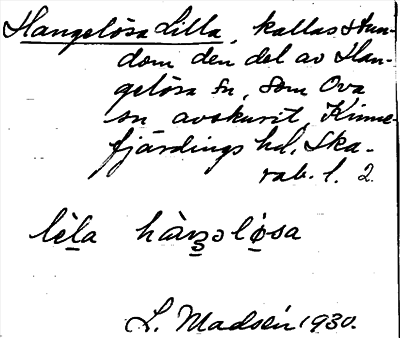 Hangelösa Lilla, kallas stun-
dom den del av Han-
gelösa sn, som Ova
sn avskurit, Kinne-
fjärdings hd, Ska-
rab. l. 2.
L. Madsén 1930.